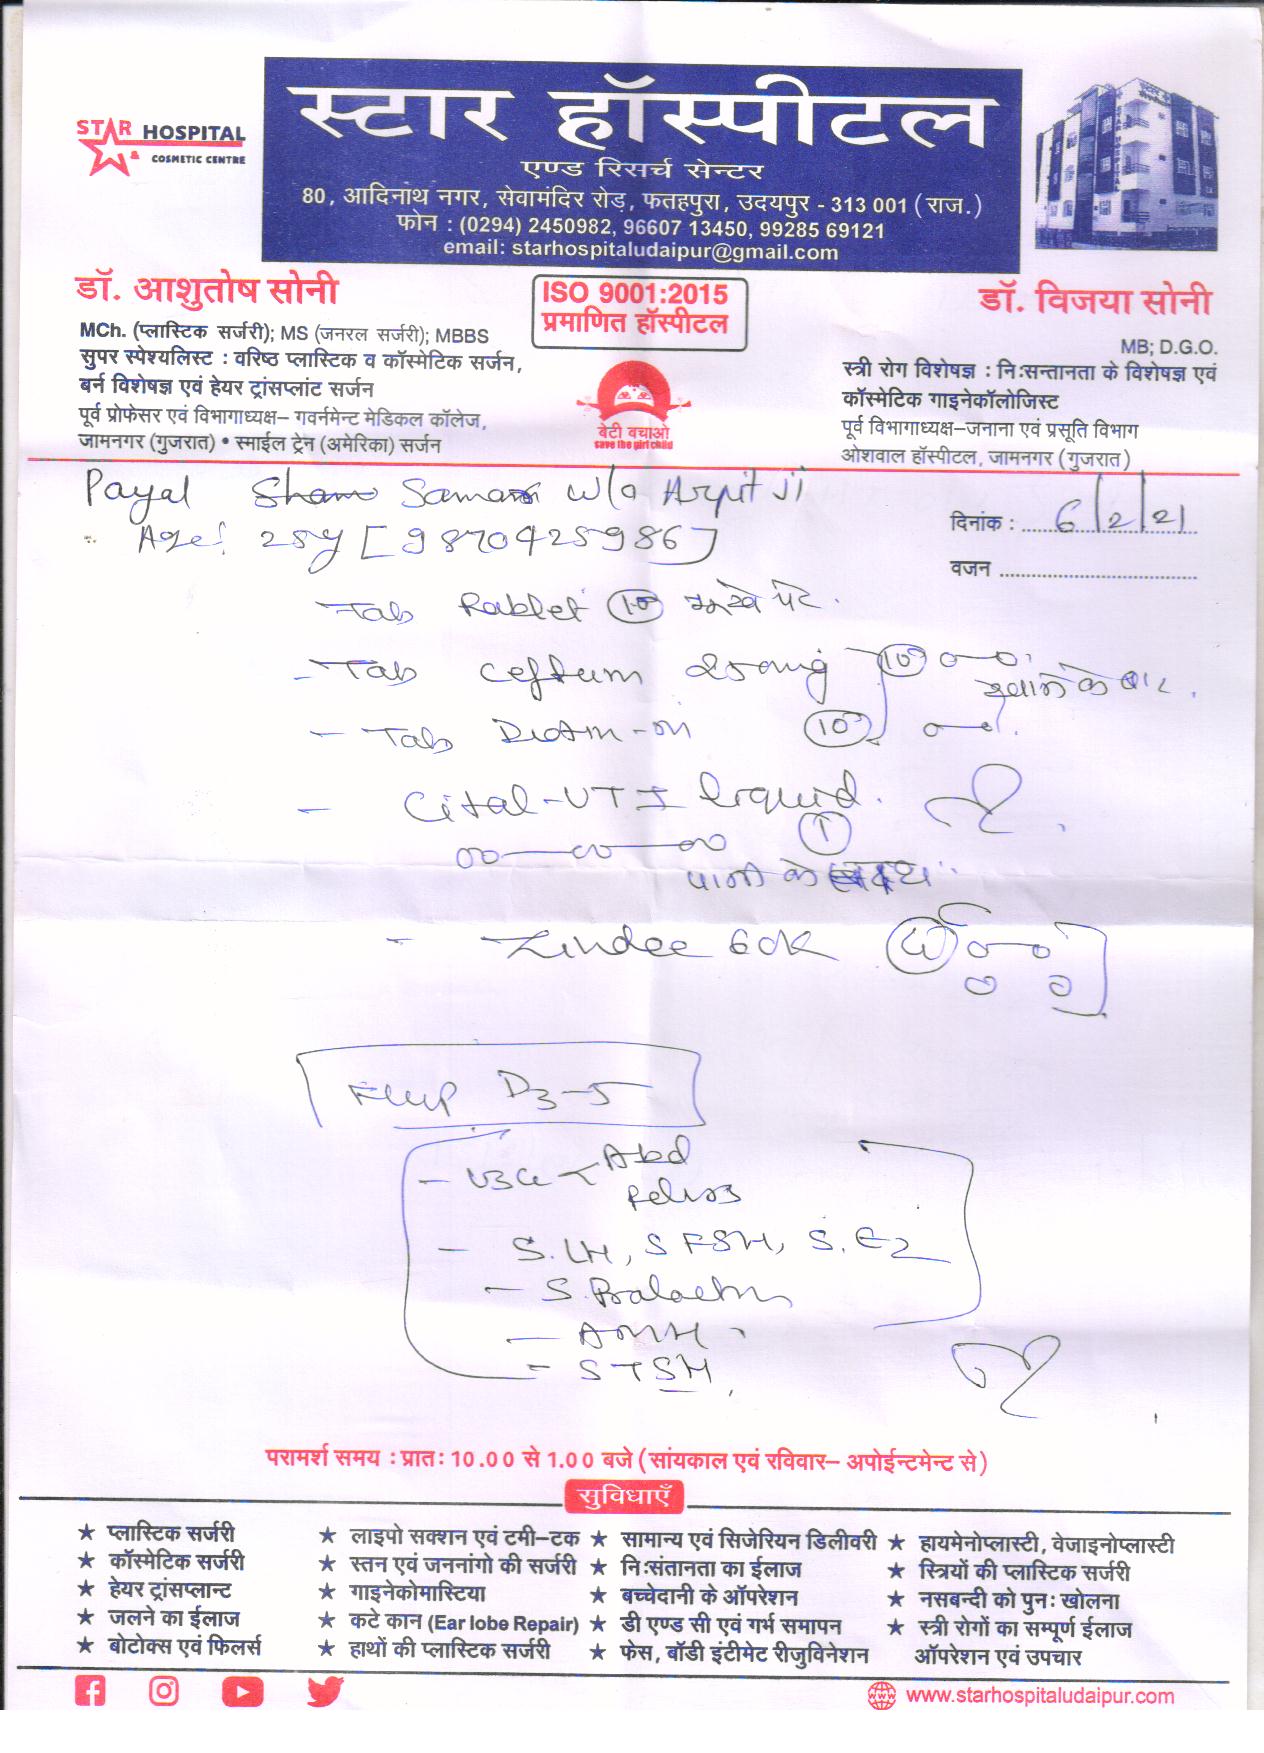 STAR HOSPITAL
& COSMETIC CENTRE
स्टार हॉस्पीटल
एण्ड रिसर्च सेन्टर
80, आदिनाथ नगर, सेवामंदिर रोड़, फतहपुरा, उदयपुर - 313 001 (राज.)
फोन : (0294) 2450982, 96607 13450, 99285 69121
email: starhospitaludaipur@gmail.com
डॉ. आशुतोष सोनी
MCh. (प्लास्टिक सर्जरी); MS (जनरल सर्जरी); MBBS
सुपर स्पेश्यलिस्ट : वरिष्ठ प्लास्टिक व कॉस्मेटिक सर्जन,
बर्न विशेषज्ञ एवं हेयर ट्रांसप्लांट सर्जन
पूर्व प्रोफेसर एवं विभागाध्यक्ष– गवर्नमेन्ट मेडिकल कॉलेज,
जामनगर (गुजरात) • स्माईल ट्रेन (अमेरिका) सर्जन
ISO 9001:2015
प्रमाणित हॉस्पीटल
बेटी बचाओ
save the girl child
डॉ. विजया सोनी
MB; D.G.O.
स्त्री रोग विशेषज्ञ : निःसन्तानता के विशेषज्ञ एवं
कॉस्मेटिक गाइनेकॉलोजिस्ट
पूर्व विभागाध्यक्ष–जनाना एवं प्रसूति विभाग
ओशवाल हॉस्पीटल, जामनगर (गुजरात)
Payal w/o Arpit Ji
दिनांक : 6/2/21
Age: 28y [9870425986]
वजन
Tab Rablet 10 भूखे पेट.
- Tab Ceftum 250mg 10 खाने के बाद.
- Tab 10
- Cital-UTI liquid. 1
पानी के साथ
- 60K
D3-5
- USG < Abd
Pelvis
- S.LH, S FSH, S.E2
- S.Prolactin
- AMH
- S TSH,
परामर्श समय : प्रातः 10.00 से 1.00 बजे (सांयकाल एवं रविवार– अपोईन्टमेन्ट से)
सुविधाएँ
★ प्लास्टिक सर्जरी ★ लाइपो सक्शन एवं टमी–टक ★ सामान्य एवं सिजेरियन डिलीवरी ★ हायमेनोप्लास्टी, वेजाइनोप्लास्टी
★ कॉस्मेटिक सर्जरी ★ स्तन एवं जननांगो की सर्जरी ★ निःसंतानता का ईलाज ★ स्त्रियों की प्लास्टिक सर्जरी
★ हेयर ट्रांसप्लान्ट ★ गाइनेकोमास्टिया ★ बच्चेदानी के ऑपरेशन ★ नसबन्दी को पुनः खोलना
★ जलने का ईलाज ★ कटे कान (Ear lobe Repair) ★ डी एण्ड सी एवं गर्भ समापन ★ स्त्री रोगों का सम्पूर्ण ईलाज
★ बोटोक्स एवं फिलर्स ★ हाथों की प्लास्टिक सर्जरी ★ फेस, बॉडी इंटीमेट रीजुविनेशन ऑपरेशन एवं उपचार
www.starhospitaludaipur.com